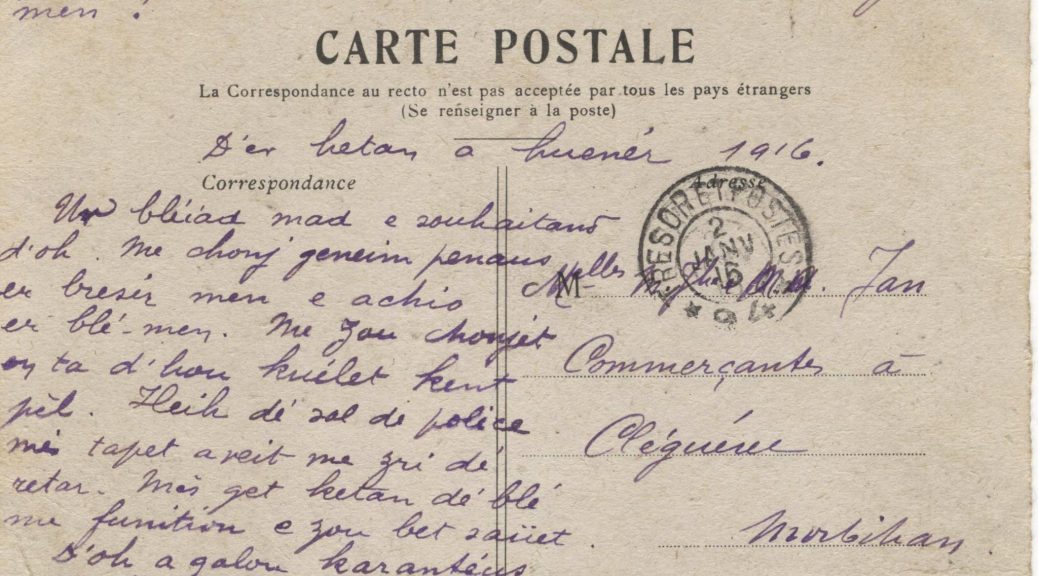 men !
CARTE POSTALE
La Correspondance au recto n'est pas acceptée par tous les pays étrangers
(Se renseigner à la poste)
D'er ketan a huenér 1916.
Correspondance
Adresse
Ur bléiad mad e souhaitand
d'oh. Me chonj genein penaus
er brezér men e achio
er blé-men. Me zou chonjet
on ta d'hou kuélet kent
pèl. Heih dé sal de police
mès tapet aveit me zri dé
retar. Mès get ketan dé blé
me funition e zou bet saüet.
D'oh a galon karantéus
TRESOR ET POSTES
2
JANV
16
M
Melles Jan
Commerçantes à
Cléguérec
Morbihan.